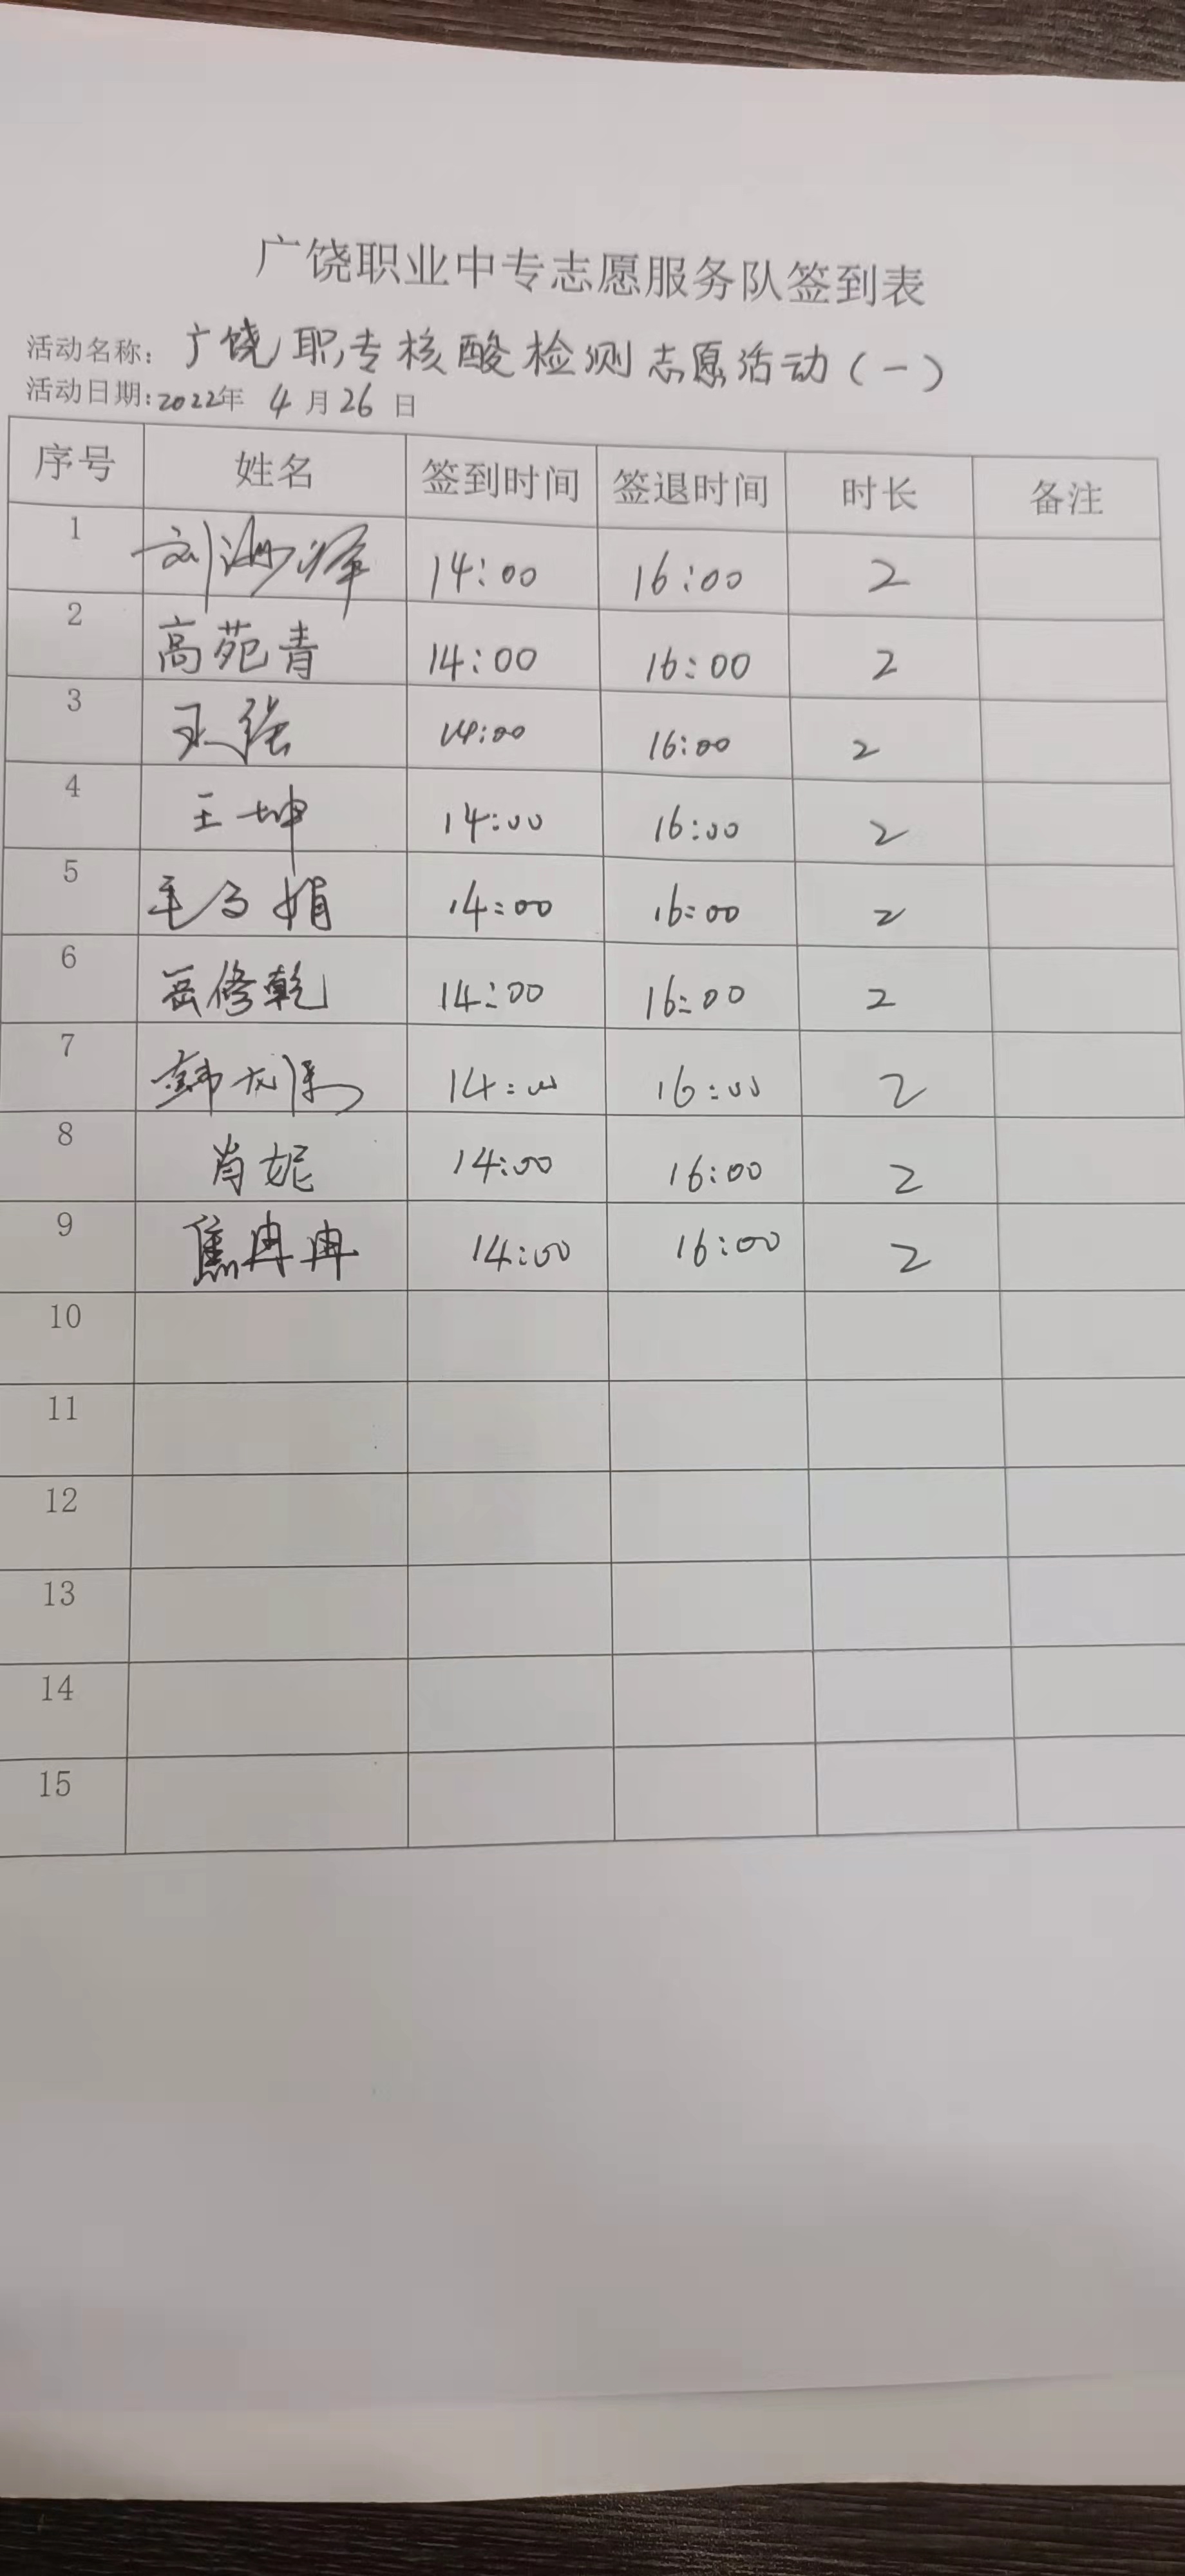 广饶职业中专志愿服务队签到表
活动名称：广饶职专核酸检测志愿活动（一）
活动日期：2022年 4月26日
序号 姓名 签到时间 签退时间 时长 备注
1 刘海洋 14:00 16:00 2
2 高苑青 14:00 16:00 2
3 王强 14:00 16:00 2
4 王坤 14:00 16:00 2
5 毛 娟 14:00 16:00 2
6 岳修乾 14:00 16:00 2
7 韩 14:00 16:00 2
8 肖妮 14:00 16:00 2
9 焦冉冉 14:00 16:00 2
10
11
12
13
14
15